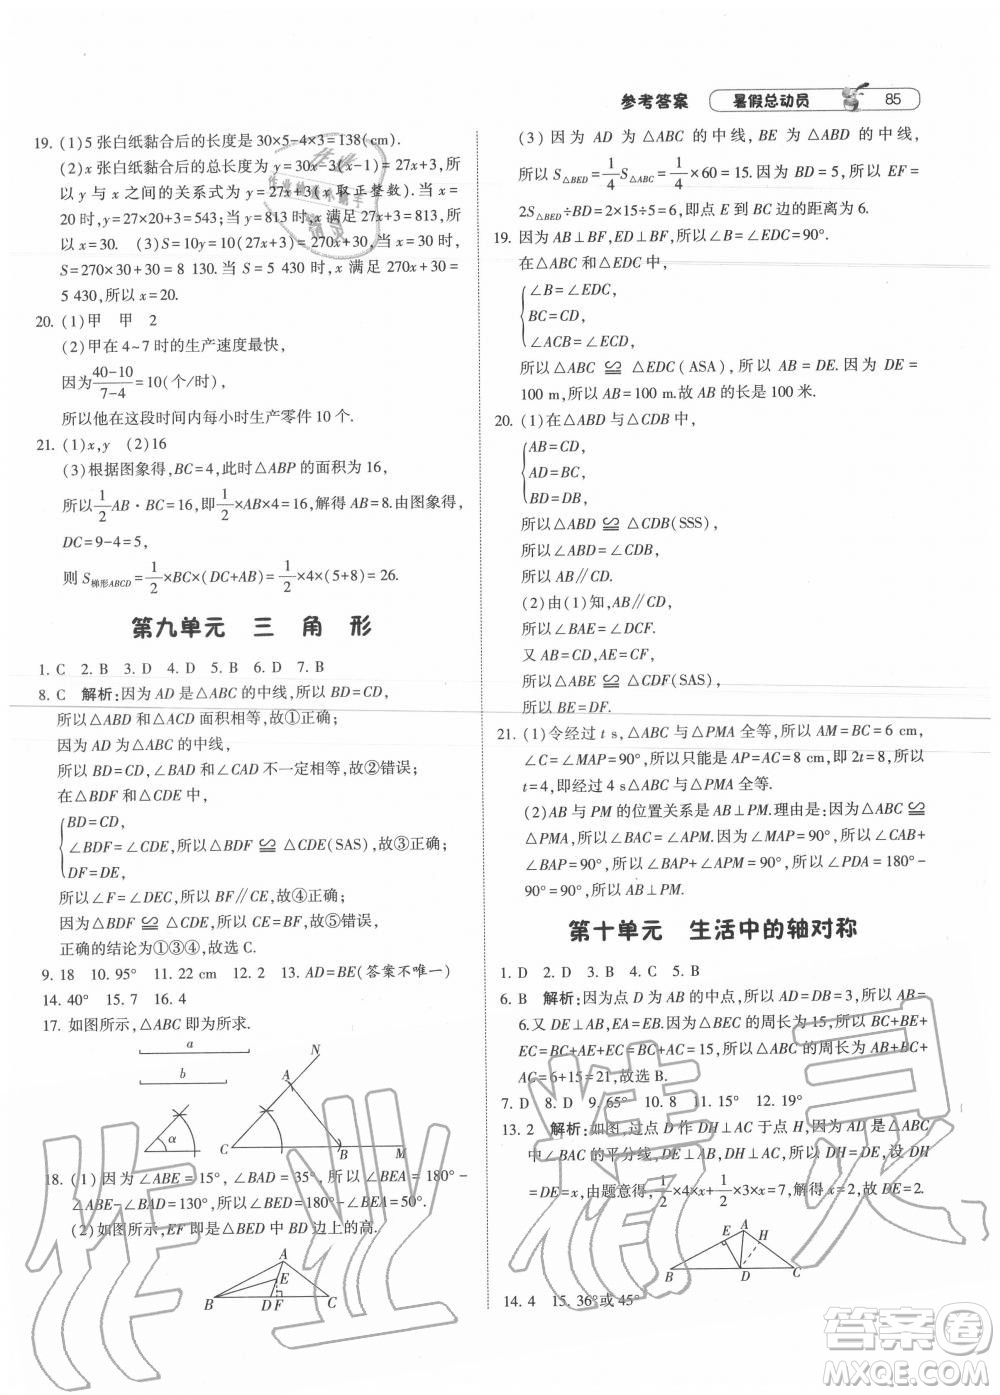 参考答案 暑假总动员 85
19. (1)5 张白纸黏合后的长度是 30×5-4×3=138(cm).
(2)x 张白纸黏合后的总长度为 y=30x-3(x-1)=27x+3,所
以 y 与 x 之间的关系式为 y=27x+3(x 取正整数). 当 x=
20 时,y=27×20+3=543;当 y=813 时,x 满足 27x+3=813,所
以 x=30. (3)S=10y=10(27x+3)=270x+30,当 x=30 时,
S=270×30+30=8 130. 当 S=5 430 时,x 满足 270x+30=
5 430,所以 x=20.
20. (1)甲 甲 2
(2)甲在 4~7 时的生产速度最快,
因为(40-10)/(7-4)=10(个/时),
所以他在这段时间内每小时生产零件 10 个.
21. (1)x,y (2)16
(3)根据图象得,BC=4,此时△ABP 的面积为 16,
所以1/2AB·BC=16,即1/2×AB×4=16,解得 AB=8.由图象得,
DC=9-4=5,
则 S梯形ABCD=1/2×BC×(DC+AB)=1/2×4×(5+8)=26.
第九单元 三 角 形
1. C 2. B 3. D 4. D 5. B 6. D 7. B
8. C 解析:因为 AD 是△ABC 的中线,所以 BD=CD,
所以△ABD 和△ACD 面积相等,故①正确;
因为 AD 为△ABC 的中线,
所以 BD=CD,∠BAD 和∠CAD 不一定相等,故②错误;
在△BDF 和△CDE 中,
BD=CD,
∠BDF=∠CDE,所以△BDF≌△CDE(SAS),故③正确;
DF=DE,
所以∠F=∠DEC,所以 BF∥CE,故④正确;
因为△BDF≌△CDE,所以 CE=BF,故⑤错误,
正确的结论为①③④,故选 C.
9. 18 10. 95° 11. 22 cm 12. 2 13. AD=BE(答案不唯一)
14. 40° 15. 7 16. 4
17. 如图所示,△ABC 即为所求.
a
b
α
N
A
C B M
18. (1)因为∠ABE=15°,∠BAD=35°,所以∠BEA=180°-
∠ABE-∠BAD=130°,所以∠BED=180°-∠BEA=50°.
(2)如图所示,EF 即是△BED 中 BD 边上的高.
A
E
B D F C
(3)因为 AD 为△ABC 的中线,BE 为△ABD 的中线,
所以 S△BED=1/4S△ABC=1/4×60=15. 因为 BD=5,所以 EF=
2S△BED÷BD=2×15÷5=6,即点 E 到 BC 边的距离为 6.
19. 因为 AB⊥BF,ED⊥BF,所以∠B=∠EDC=90°.
在△ABC 和△EDC 中,
∠B=∠EDC,
BC=CD,
∠ACB=∠ECD,
所以△ABC≌△EDC(ASA),所以 AB=DE.因为 DE=
100 m,所以 AB=100 m.故 AB 的长是 100 米.
20. (1)在△ABD 与△CDB 中,
AB=CD,
AD=BC,
BD=DB,
所以△ABD≌△CDB(SSS),
所以∠ABD=∠CDB,
所以 AB∥CD.
(2)由(1)知,AB∥CD,
所以∠BAE=∠DCF.
又 AB=CD,AE=CF,
所以△ABE≌△CDF(SAS),
所以 BE=DF.
21. (1)令经过 t s,△ABC 与△PMA 全等,所以 AM=BC=6 cm,
∠C=∠MAP=90°,所以只能是 AP=AC=8 cm,即 2t=8,所以
t=4,即经过 4 s△ABC 与△PMA 全等.
(2)AB 与 PM 的位置关系是 AB⊥PM.理由是:因为△ABC≌
△PMA,所以∠BAC=∠APM. 因为∠MAP=90°,所以∠CAB+
∠BAP=90°,所以∠BAP+∠APM=90°,所以∠PDA=180°-
90°=90°,所以 AB⊥PM.
第十单元 生活中的轴对称
1. D 2. D 3. B 4. C 5. B
6. B 解析:因为点 D 为 AB 的中点,所以 AD=DB=3,所以 AB=
6.又 DE⊥AB,EA=EB.因为△BEC 的周长为 15,所以 BC+BE+
EC=BC+AE+EC=BC+AC=15,所以△ABC 的周长为 AB+BC+
AC=6+15=21,故选 B.
7. D 8. D 9. 65° 10. 8 11. 15° 12. 19°
13. 2 解析:如图,过点 D 作 DH⊥AC 于点 H,因为 AD 是△ABC
中∠BAC 的平分线,DE⊥AB,DH⊥AC,所以 DE=DH,设 DH
=DE=x,由题意得,1/2×4×x+1/2×3×x=7,解得 x=2,故 DE=2.
A
H
E
B D C
14. 4 15. 36°或 45°
作业精灵
答案圈
MXQE.COM